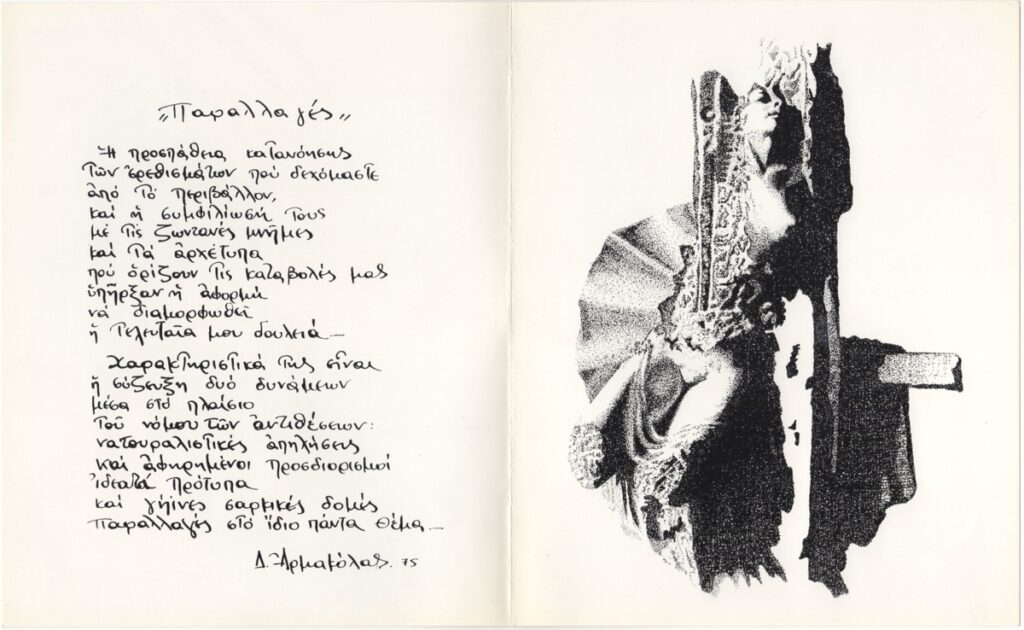 „Παραλλαγές„
Ἡ προσπάθεια κατανόησης
Τῶν ἐρεθισμάτων πού δεχόμαστε
ἀπό τό περιβάλλον,
καί ἡ συμφιλίωσή τους
μέ τίς ζωντανές μνῆμες
καί τά ἀρχέτυπα
πού ὁρίζουν τίς καταβολές μας
ὑπῆρξαν ἡ ἀφορμή
νά διαμορφωθεῖ
ἡ τελευταῖα μου δουλειά —
Χαρακτηριστικά της εἶναι
ἡ σύζευξη δυό δυνάμεων
μέσα στό πλαίσιο
τοῦ νόμου τῶν ἀντιθέσεων:
νατουραλιστικές ἀπηλήσεις
καί ἀφηρημένοι προσδιορισμοί
ἰδεατά πρότυπα
καί γήινες σαρκικές δομές
παραλλαγές στό ἴδιο πάντα θέμα —
Δ. Ἀρμακόλας. 75